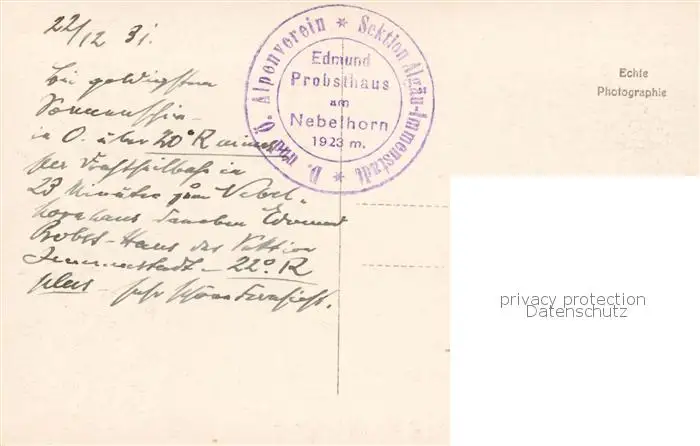 22/12 31.
bei
Sonnenschein
in O. über 20° R
per Drahtseilbahn in
23 Minuten zum Nebel-
hornhaus daneben Edmund
Probst-Haus der Sektion
Immenstadt - 22° R
plus - sehr schöne Fernsicht.
D. und Ö. Alpenverein * Sektion Algäu-Immenstadt *
Edmund
Probsthaus
am
Nebelhorn
1923 m.
Echte
Photographie
privacy protection
Datenschutz